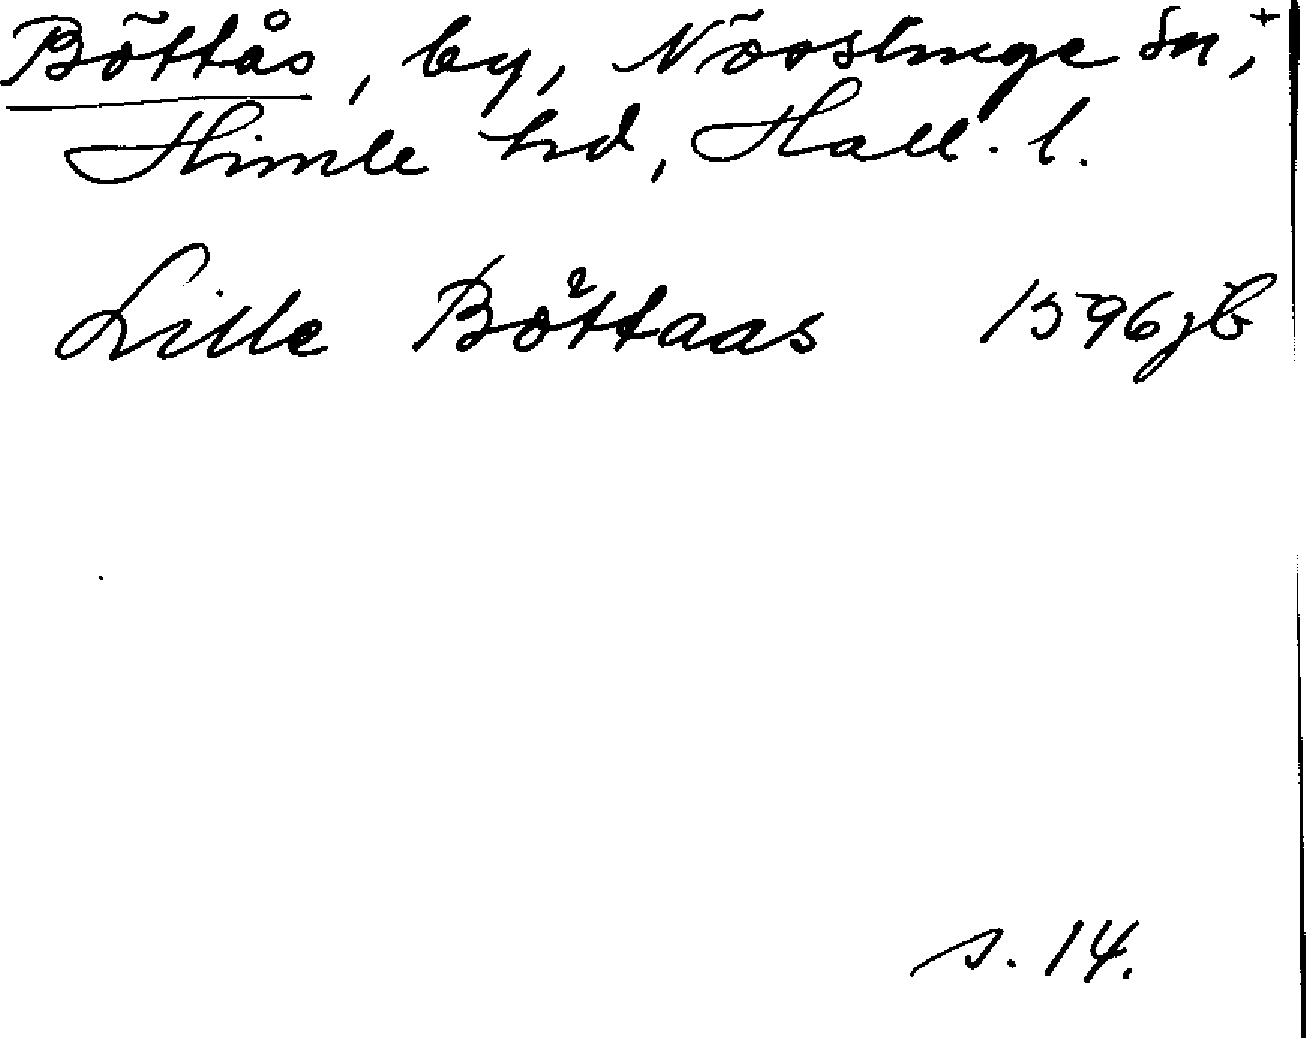 Böttås, by, Nösslinge sn, +
Himle hd, Hall. l.
Lille Böttaas 1596 jb
s. 14.